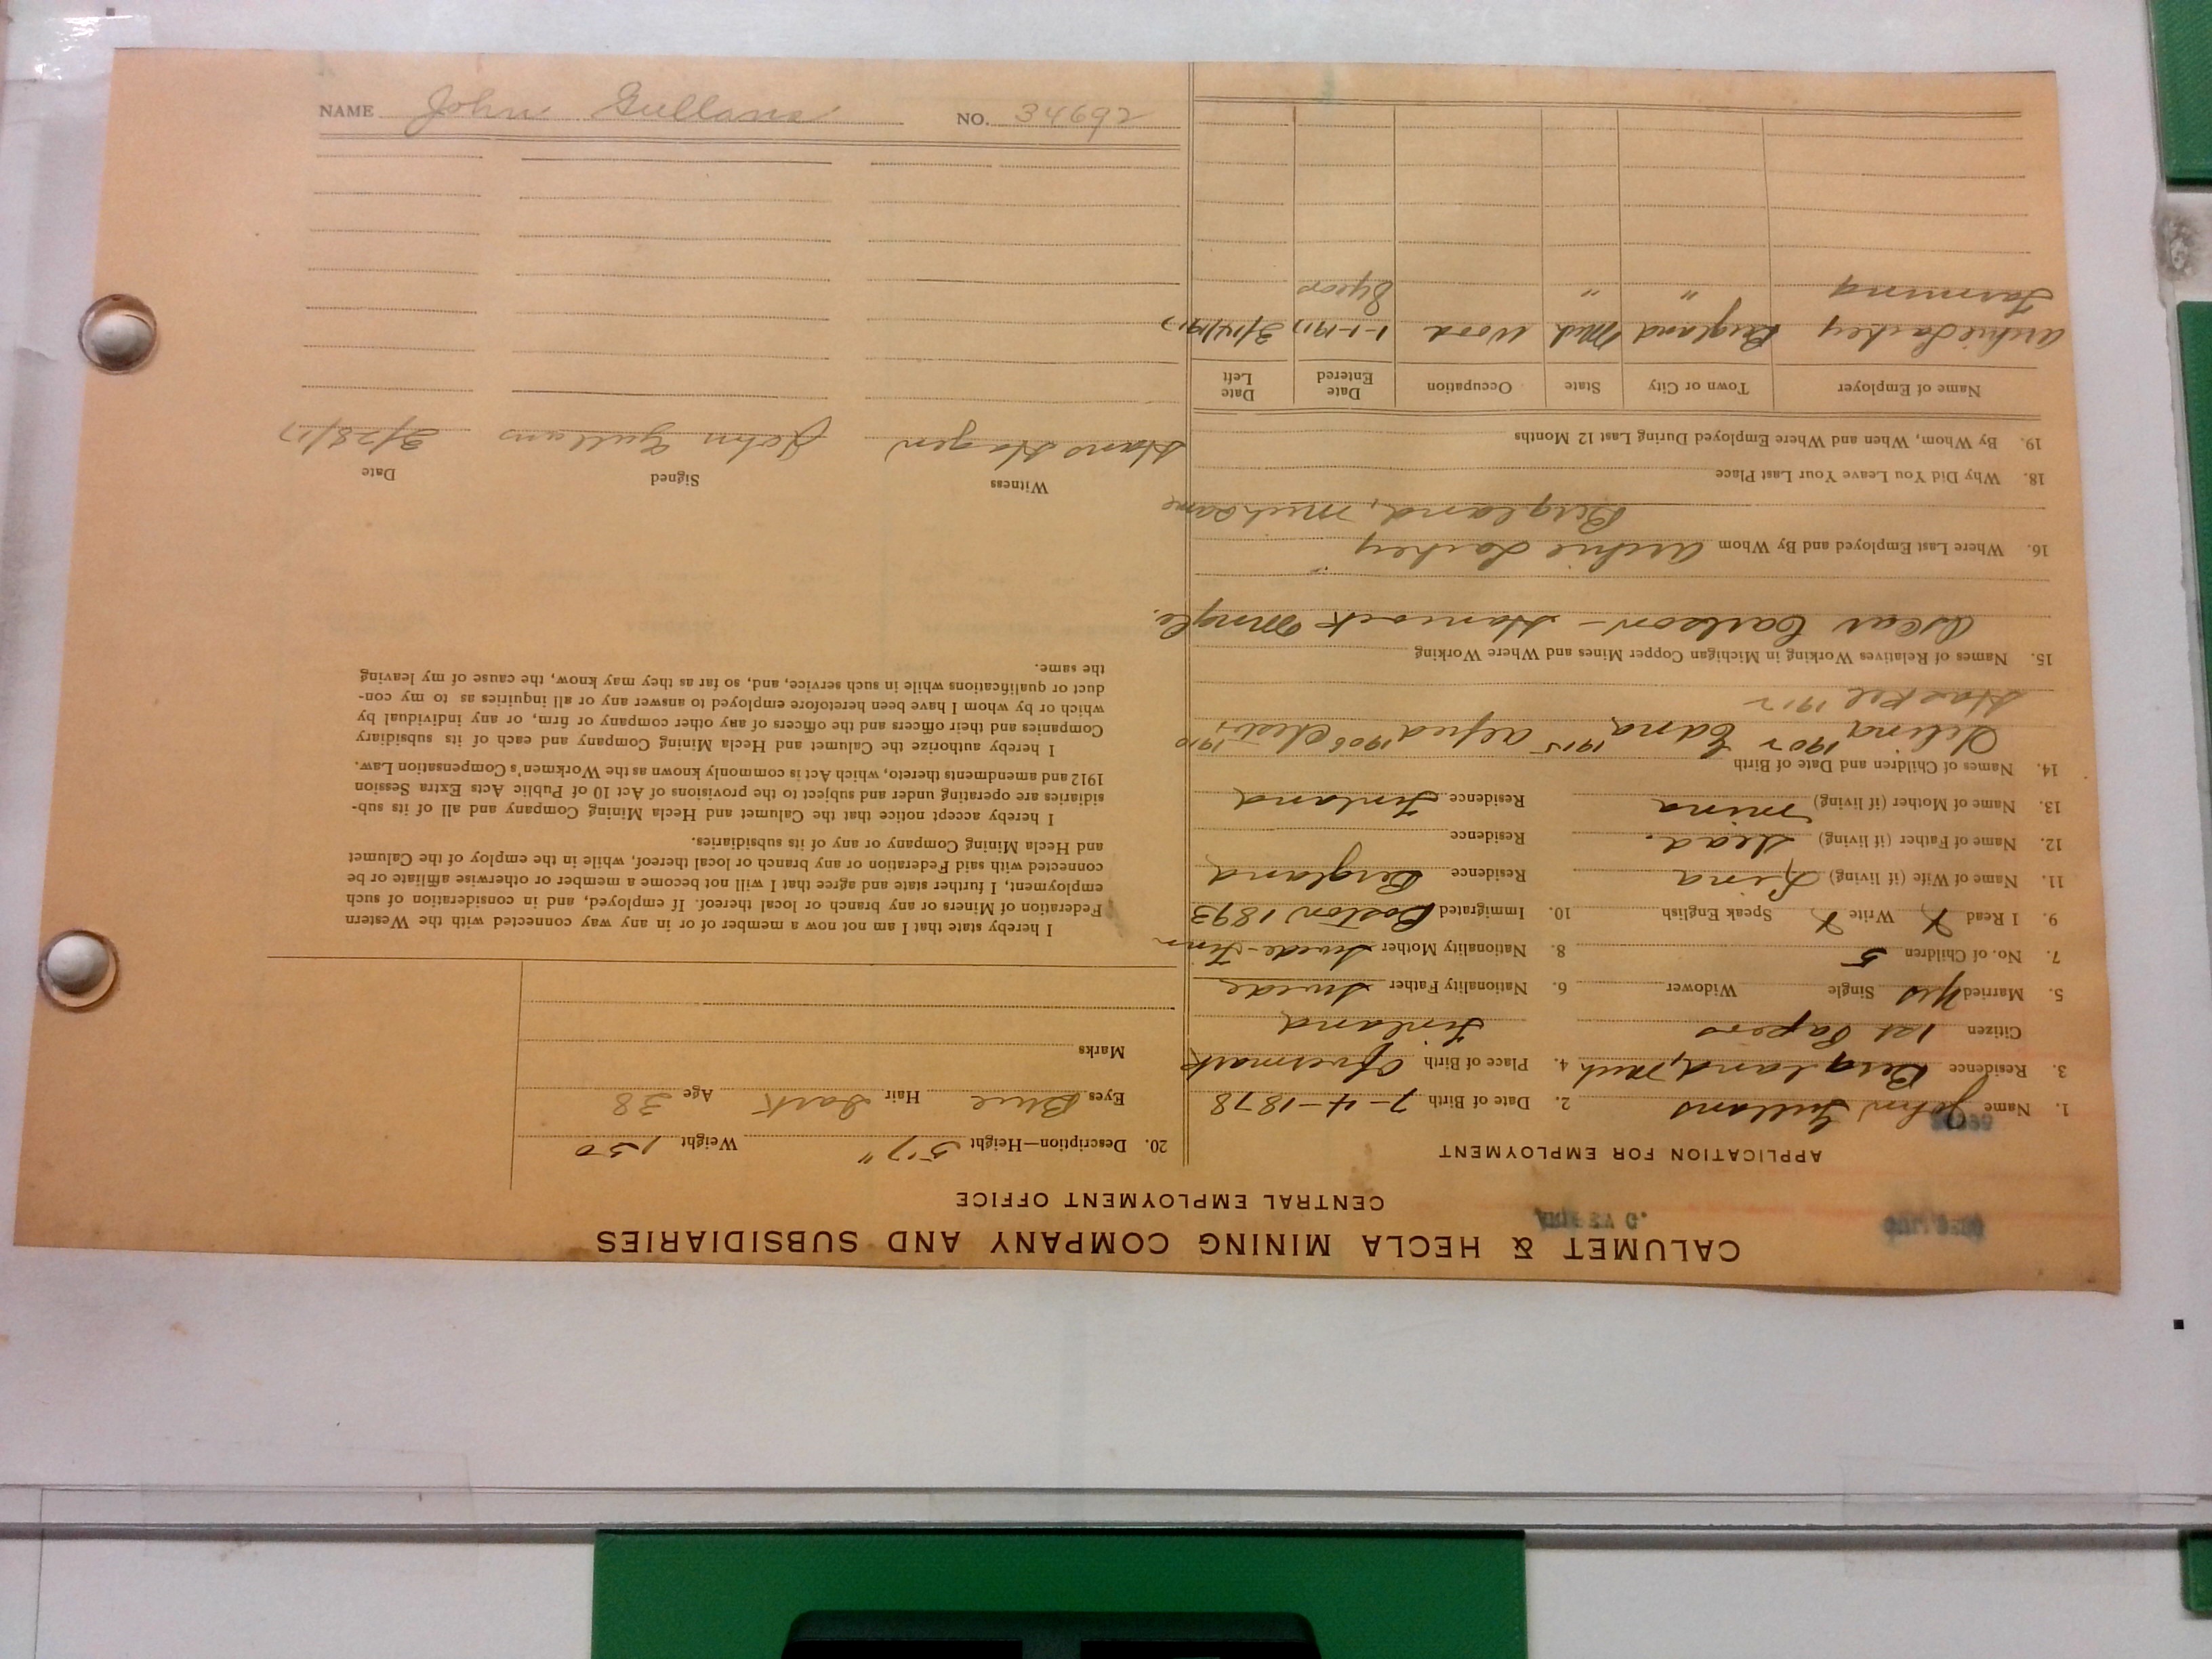 CALUMET & HECLA MINING COMPANY AND SUBSIDIARIES
CENTRAL EMPLOYMENT OFFICE
APPLICATION FOR EMPLOYMENT
1. Name John Gullans 2. Date of Birth 7-4-1878
3. Residence Bergland, Mich 4. Place of Birth Ofvermark
Citizen 1st Papers Finland
5. Married Yes Single Widower 6. Nationality Father Swede
7. No. of Children 5 8. Nationality Mother Swede-Finn
9. I Read X Write X Speak English 10. Immigrated Boston 1893
11. Name of Wife (if living) Lina Residence Bergland
12. Name of Father (if living) dead. Residence
13. Name of Mother (if living) Mina Residence Finland
14. Names of Children and Date of Birth
1902 Edna 1915 Alfred 1906 1910
1912
15. Names of Relatives of Working in Michigan Copper Mines and Where Working
Oscar Carlson - Hancock Mng Co.
16. Where Last Employed and By Whom Archie Larkey
Bergland, Mich same
18. Why Did You Leave Your Last Place
19. By Whom, When and Where Employed During Last 12 Months
Name of Employer Town or City State Occupation Date Entered Date Left
Archie Larkey Bergland Mich Wood 1-1-1917 3/14/1917
Farming " " 8 years
20. Description—Height 5'7" Weight 150
Eyes Blue Hair Dark Age 38
Marks
I hereby state that I am not now a member of or in any way connected with the Western
Federation of Miners or any branch or local thereof. If employed, and in consideration of such
employment, I further state and agree that I will not become a member or otherwise affiliate or be
connected with said Federation or any branch or local thereof, while in the employ of the Calumet
and Hecla Mining Company or any of its subsidiaries.
I hereby accept notice that the Calumet and Hecla Mining Company and all of its sub-
sidiaries are operating under and subject to the provisions of Act 10 of Public Acts Extra Session
1912 and amendments thereto, which Act is commonly known as the Workmen's Compensation Law.
I hereby authorize the Calumet and Hecla Mining Company and each of its subsidiary
Companies and their officers and the officers of any other company or firm, or any individual by
which or by whom I have been heretofore employed to answer any or all inquiries as to my con-
duct or qualifications while in such service, and, so far as they may know, the cause of my leaving
the same.
Witness Signed Date
Hans Hagen John Gullans 3/28/17
NAME John Gullans NO. 34692